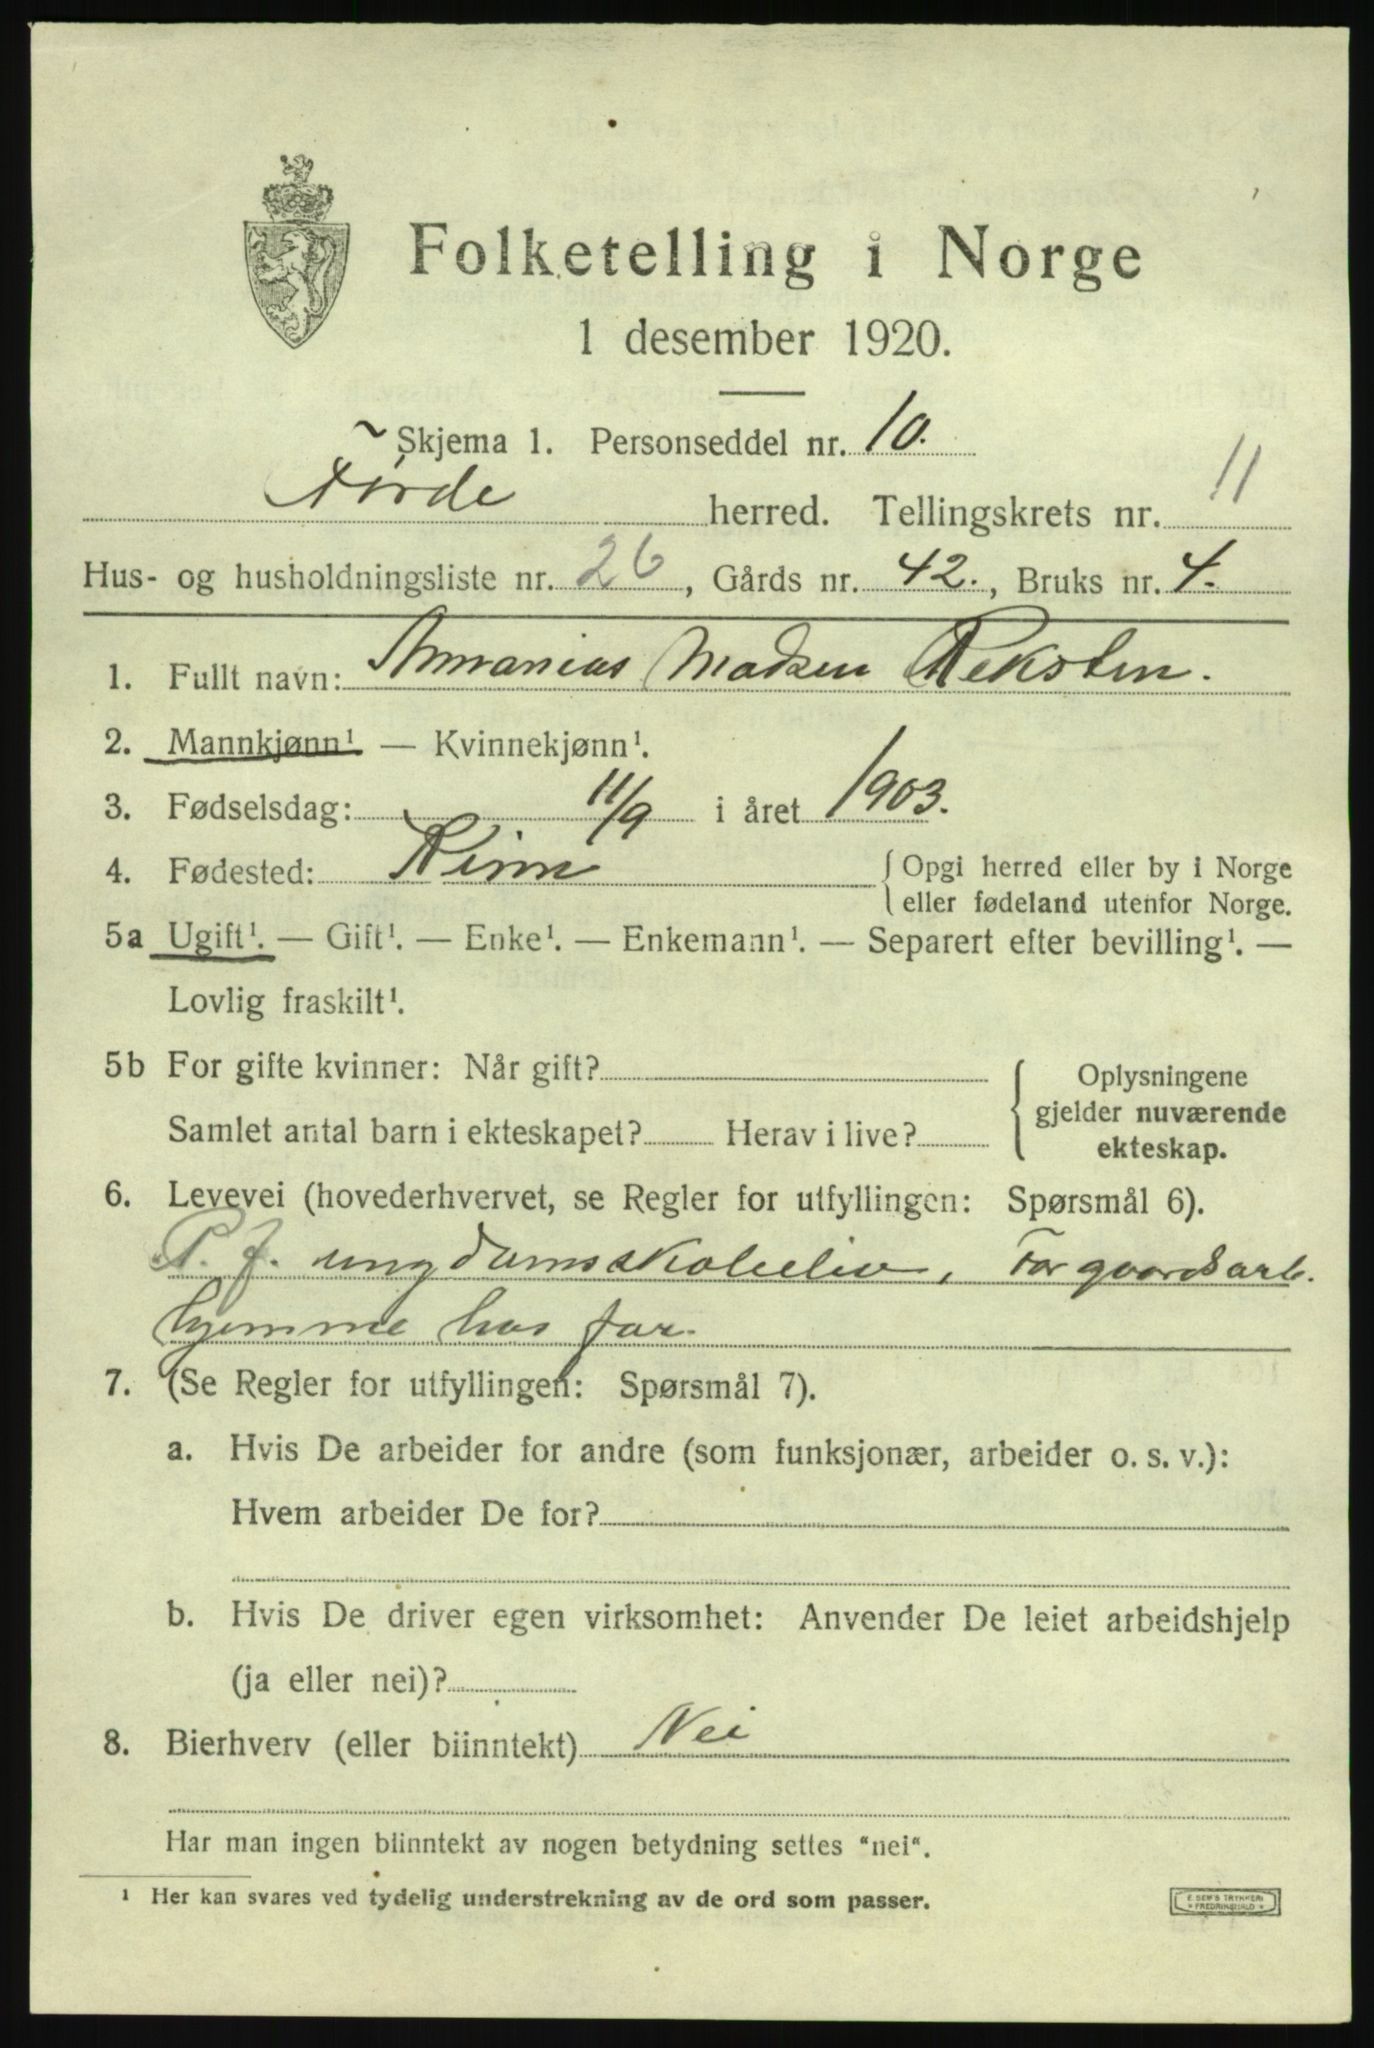 Folketelling i Norge
1 desember 1920.
Skjema 1. Personseddel nr. 10.
Førde herred. Tellingskrets nr. 11
Hus- og husholdningsliste nr. 26, Gårds nr. 42., Bruks nr. 4.
1. Fullt navn: Annanias Madsen Reksten.
2. Mannkjønn¹ — Kvinnekjønn¹.
3. Fødselsdag: 11/9 i året 1903.
4. Fødested: Kinn { Opgi herred eller by i Norge
eller fødeland utenfor Norge.
5a Ugift¹. — Gift¹. — Enke¹. — Enkemann¹. — Separert efter bevilling¹. —
Lovlig fraskilt¹.
5b For gifte kvinner: Når gift?
Samlet antal barn i ekteskapet? Herav i live?
{ Oplysningene
gjelder nuværende
ekteskap.
6. Levevei (hovederhvervet, se Regler for utfyllingen: Spørsmål 6).
P. f. ungdomsskoleelev, For gaardsarb.
hjemme hos far.
7. (Se Regler for utfyllingen: Spørsmål 7).
a. Hvis De arbeider for andre (som funksjonær, arbeider o. s. v.):
Hvem arbeider De for?
b. Hvis De driver egen virksomhet: Anvender De leiet arbeidshjelp
(ja eller nei)?
8. Bierhverv (eller biinntekt) Nei
Har man ingen biinntekt av nogen betydning settes "nei".
¹ Her kan svares ved tydelig understrekning av de ord som passer.
E. SEM'S TRYKKERI
* FREDRIKSHALD *